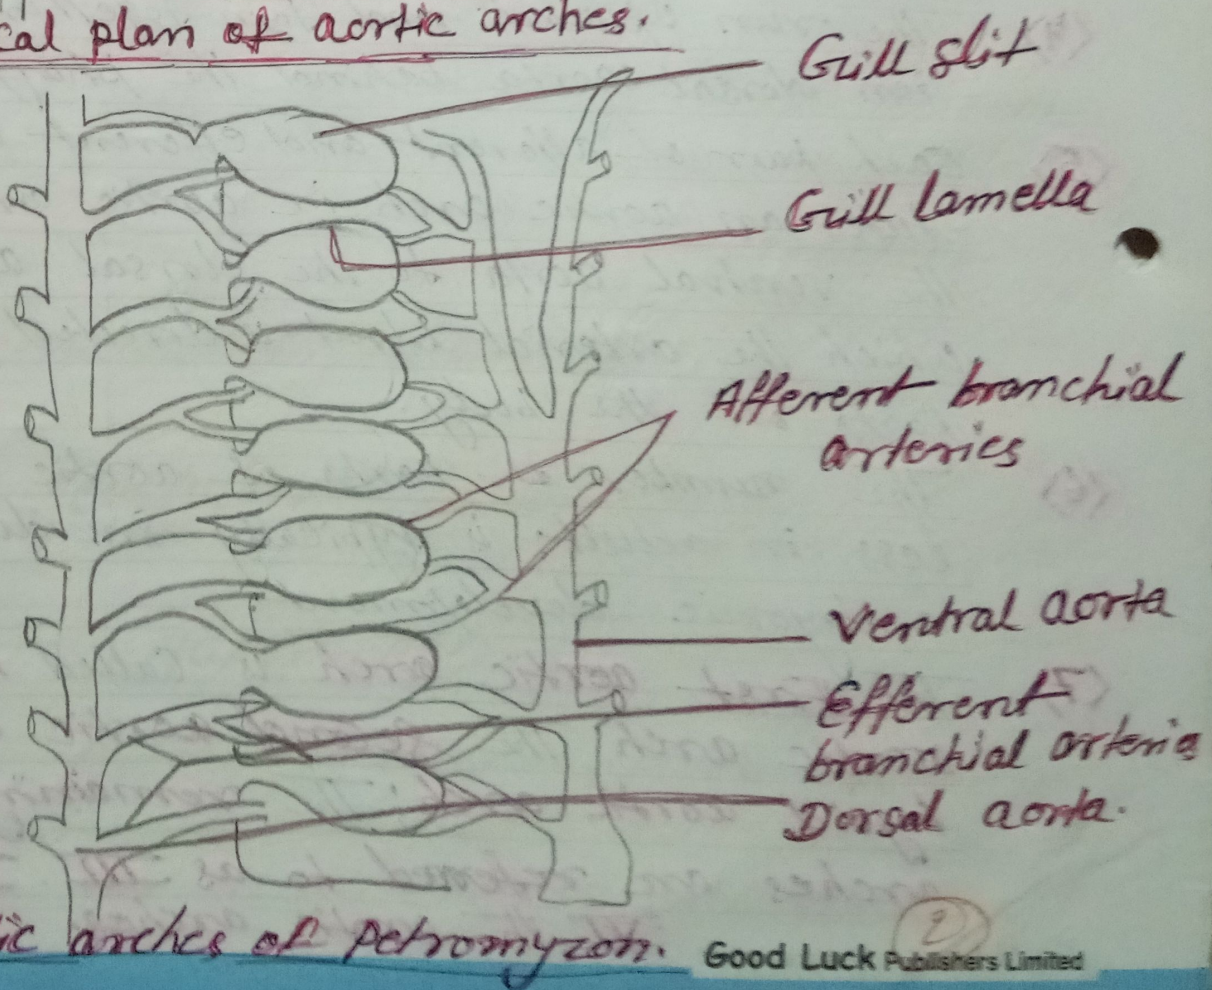 cal plan of aortic arches.
Gill slit
Gill lamella
Afferent branchial
arteries
Ventral aorta
Efferent
branchial arteries
Dorsal aorta.
ic arches of Petromyzon.
2
Good Luck Publishers Limited